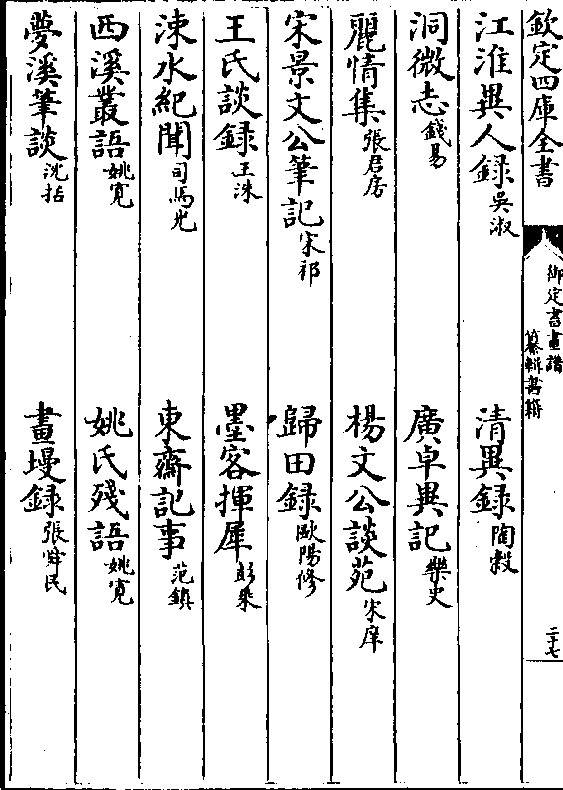 欽定四庫全書
御定書畫譜
纂輯書籍
二十七
江淮異人録吳淑
清異録陶穀
洞微志錢易
廣卓異記樂史
麗情集張君房
楊文公談苑宋庠
宋景文公筆記宋祁
歸田録歐陽修
王氏談録王洙
墨客揮犀彭乘
涑水紀聞司馬光
東齋記事范鎮
西溪叢語姚寬
姚氏殘語姚寬
夢溪筆談沈括
畫墁録張舜民